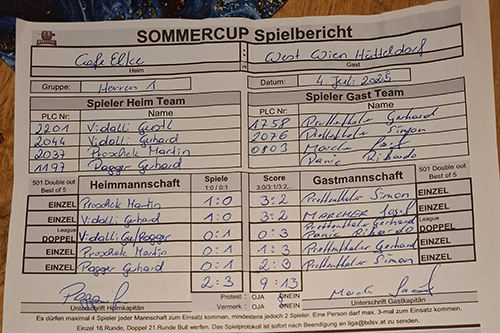 SOMMERCUP Spielbericht
Cafe Elke : West Wien Hütteldorf
Heim vs Gast
Gruppe: Herren 1 Datum: 4 Juli 2025
Spieler Heim Team Spieler Gast Team
PLC Nr: Name PLC Nr: Name
2201 Vidalli 1758 Prettenthaler Gerhard
2044 Vidalli Gerhard 2076 Prettenthaler Simon
2037 Proschek Martin 0803
1197 Pogger Gerhard Panic Rikardo
501 Double out Best of 5 Heimmannschaft Spiele 1:0 / 0:1 Score 3:0/3:1/3:2... Gastmannschaft 501 Double out Best of 5
EINZEL Proschek Martin 1:0 3:2 Prettenthaler Simon EINZEL
EINZEL Vidalli Gerhard 1:0 3:2 EINZEL
League DOPPEL Vidalli G/Pogger 0:1 0:3 Prettenthaler Gerhard Panic Rikardo League DOPPEL
EINZEL Proschek Martin 0:1 1:3 Prettenthaler Gerhard EINZEL
EINZEL Pogger Gerhard 0:1 2:3 Prettenthaler Simon EINZEL
2:3 9:13
Protest : OJA ONEIN
Unterschrift Heimkapitän Vermerk : OJA ONEIN Unterschrift Gastkapitän
Es dürfen maximal 4 Spieler jeder Mannschaft zum Einsatz kommen, mindestens jedoch 2 Spieler. Eine Person darf max. 3-mal zum Einsatz kommen.
Einzel 16.Runde, Doppel 21.Runde Bull werfen. Das Spielprotokoll ist sofort nach Beendigung an liga@bdsv.at zu senden.